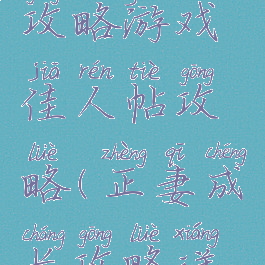 攻略游戏
jiā rén tiè gōng
佳人帖攻
lüè zhèng qī chéng
略(正妻成
cháng gōng lüè xiáng
长攻略详